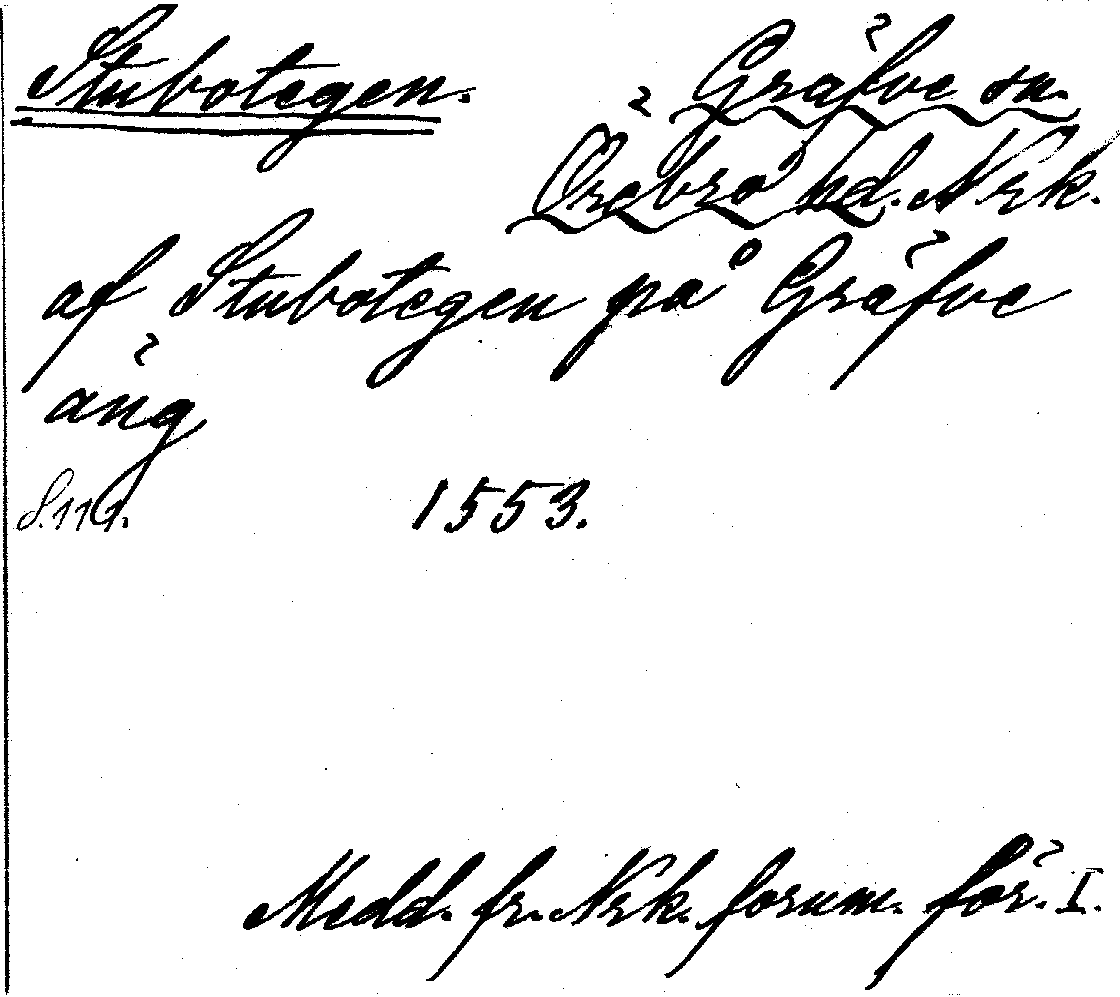 Stubotegen.
Gräfve sn.
Örebro hd. Nrk.
af Stubotegen på Gräfve
äng
S. 111. 1553.
Medd. fr. Nrk. fornm. för. I.